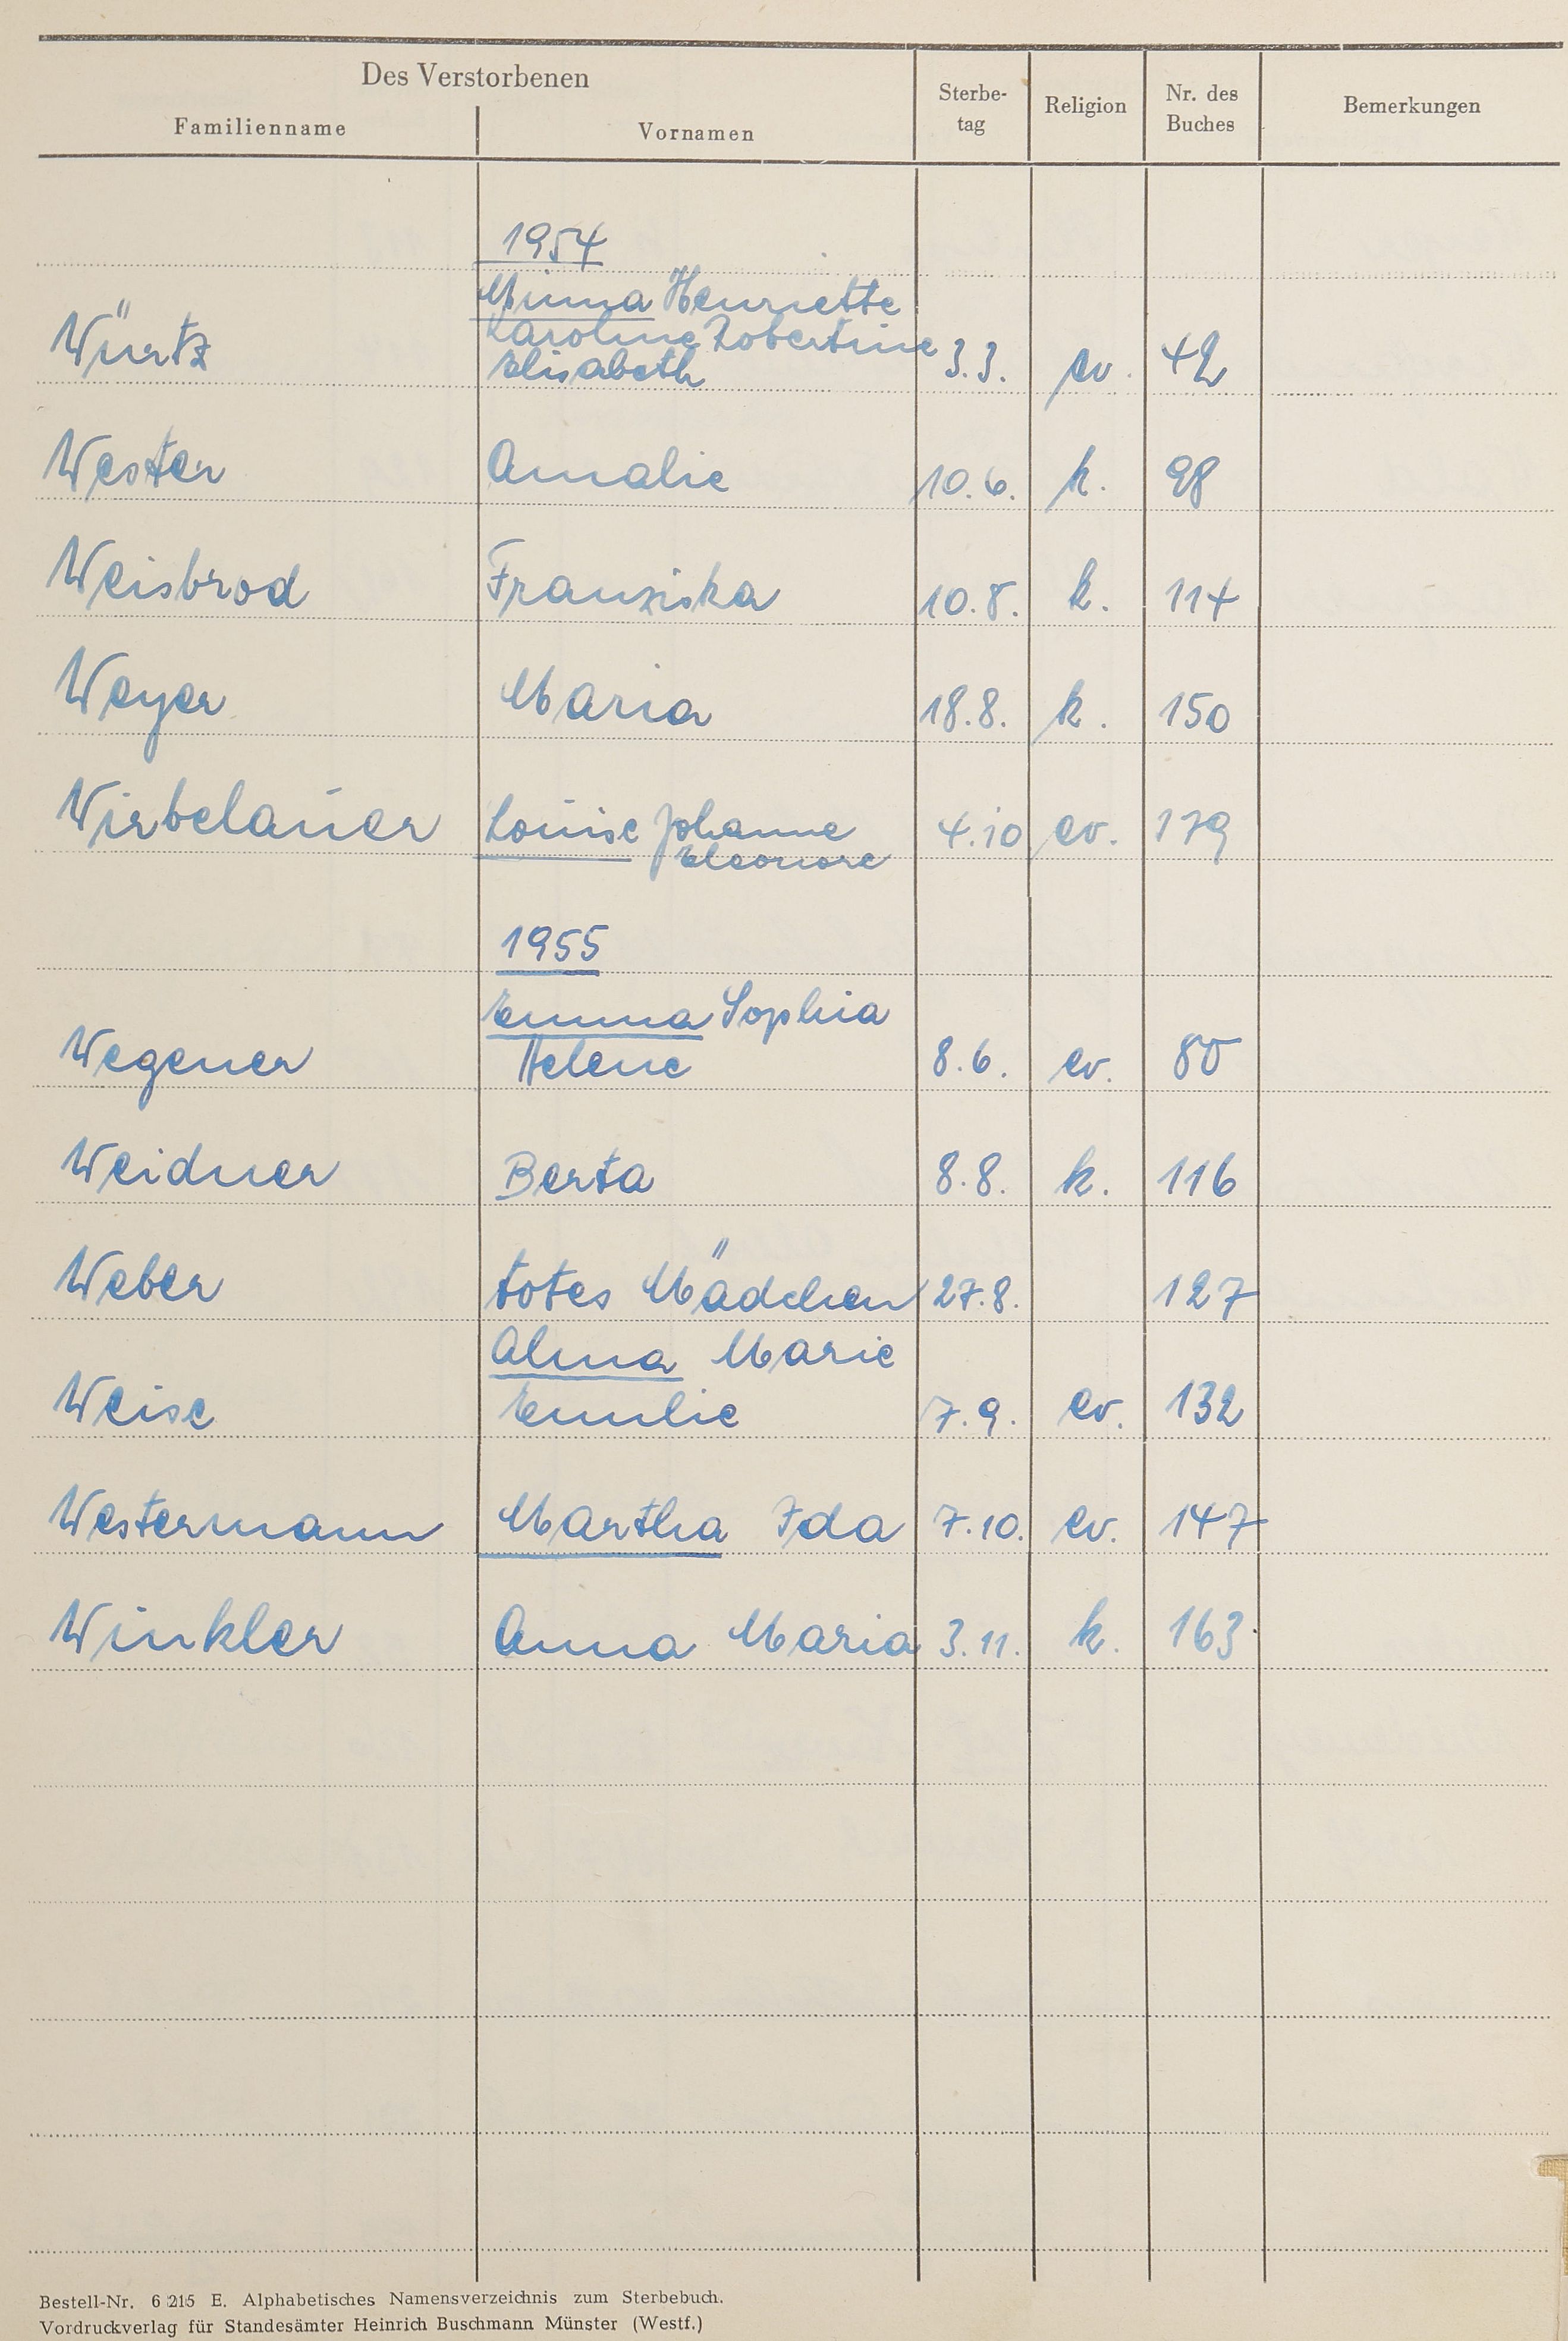 Des Verstorbenen
Familienname Vornamen Sterbe-tag Religion Nr. des Buches Bemerkungen
1954
Minna Henriette
Karoline Robertine
Würtz Elisabeth 3.3. ev. 42
Wester Amalie 10.6. k. 98
Weisbrod Franziska 10.8. k. 114
Weyer Maria 18.8. k. 150
Wirbelauer Louise Johanne 4.10 ev. 179
Eleonore
1955
Emma Sophia
Wegener Helene 8.6. ev. 80
Weidner Berta 8.8. k. 116
Weber totes Mädchen 27.8. 127
Alma Marie
Weise Emilie 7.9. ev. 132
Westermann Martha Ida 7.10. ev. 147
Winkler Anna Maria 3.11. k. 163
Bestell-Nr. 6 215 E. Alphabetisches Namensverzeichnis zum Sterbebuch.
Vordruckverlag für Standesämter Heinrich Buschmann Münster (Westf.)